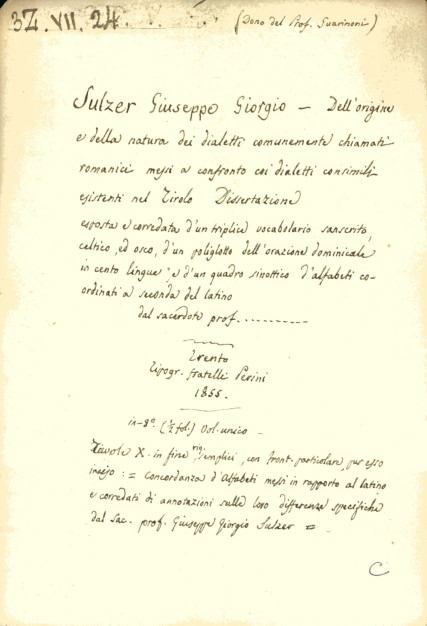 3Z. VII. 24.
(Dono del Prof. Suarinoni)
Sulzer Giuseppe Giorgio — Dell'origine
e della natura dei dialetti comunemente chiamati
romanici messi a confronto coi dialetti consimili
esistenti nel Tirolo Dissertazione
esposta e corredata d'un triplice vocabolario sanscrito,
celtico, ed osco, d'un poliglotto dell'orazione dominicale
in cento lingue e d'un quadro sinottico d'alfabeti co-
ordinati a seconda del latino
dal sacerdote prof. ..........
Trento
Tipogr. fratelli Perini
1855.
in-8° (½ fol.) Vol. unico –
Tavole X. in fine semplici, con front. particolare, pur esso
inciso := Concordanza d'Alfabeti messi in rapporto al latino
e corredati di annotazioni sulle loro differenze specifiche
dal Sac. prof. Giuseppe Giorgio Sulzer =
C